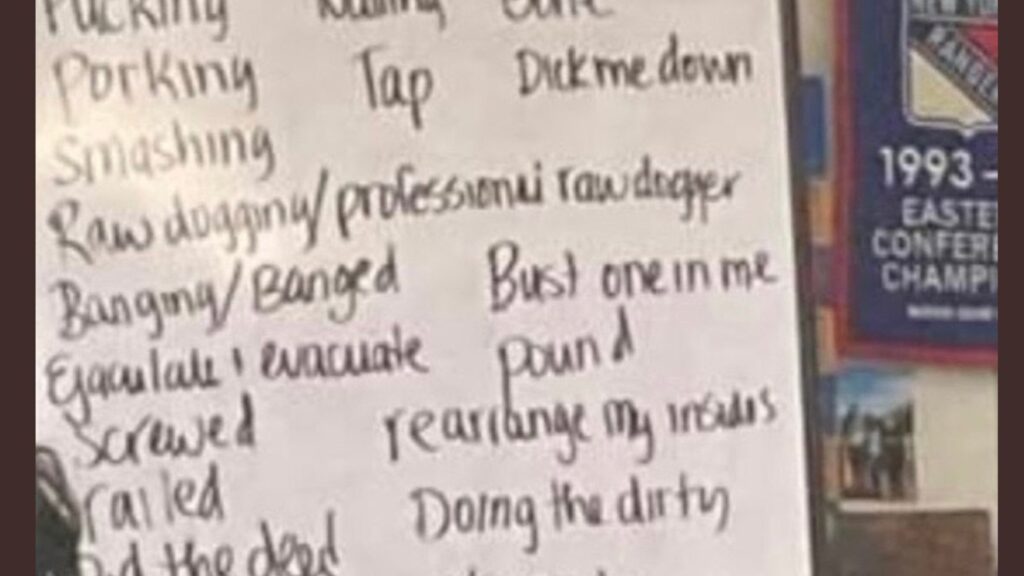 Porking Tap Dick me down
Smashing
Raw dogging/professional raw dogger
Banging/Banged Bust one in me
Ejaculate & evacuate pound
Screwed rearrange my insides
railed Doing the dirty
the deed
NEW YORK
RANGE
1993 -
EASTE
CONFERE
CHAMPI